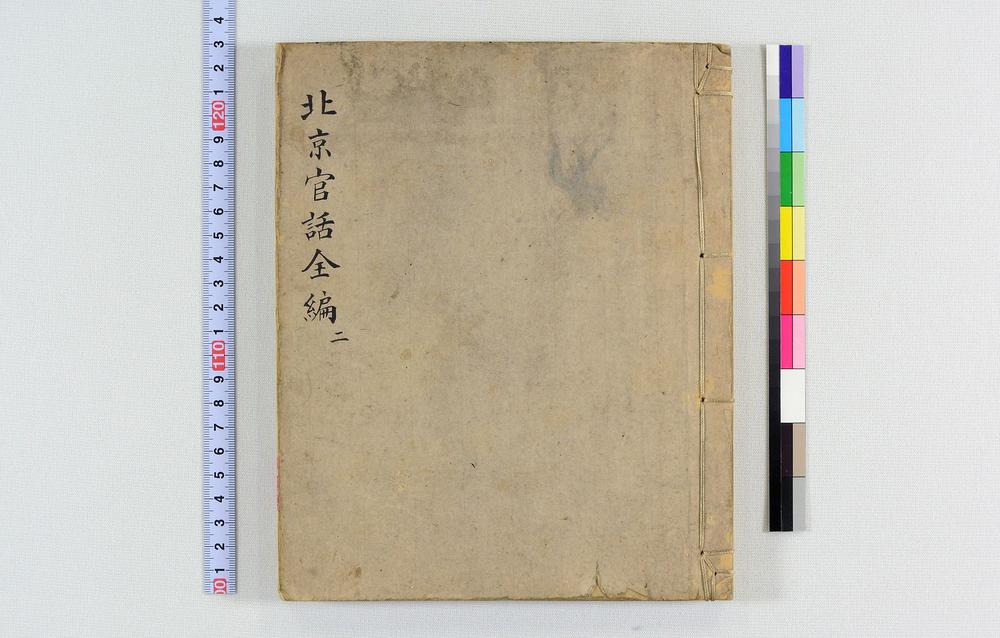 北京官話全編
二
4
3
2
1
120
9
8
7
6
5
4
3
2
1
110
9
8
7
6
5
4
3
2
1
00